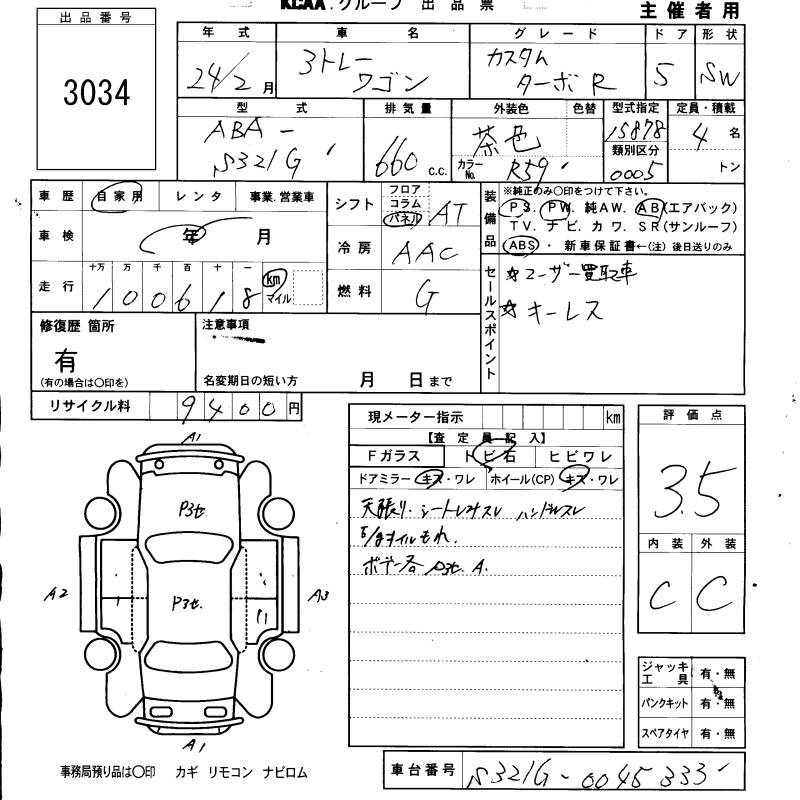 出品番号
3034
KCAA.グループ 出品票
主催者用
年式 車名 グレード ドア 形状
24/2月 ミトレーワゴン カスタムターボR 5 SW
型式 排気量 外装色 色替 型式指定 定員・積載
ABA-S321G 660 c.c. 茶色 15878 4名
カラーNo. R59 類別区分 0005 トン
車歴 自家用 レンタ 事業.営業車
車検 年 月
走行 十万 万 千 百 十 一
100618 km マイル
シフト フロア コラム パネル AT
冷房 AAC
燃料 G
装備品 ※純正のみ〇印をつけて下さい。
PS. PW. 純AW. AB(エアバック)
TV. ナビ. カワ. SR(サンルーフ)
ABS・ 新車保証書←(注) 後日送りのみ
セールスポイント
☆ユーザー買取車
☆キーレス
修復歴 箇所
有
(有の場合は〇印を)
注意事項
名変期日の短い方 月 日まで
リサイクル料 9400円
現メーター指示 km
【査定員記入】
Fガラス トビ石 ヒビワレ
ドアミラー キズ・ワレ ホイール(CP) キズ・ワレ
天張り.シートしみスレ ハンドルスレ
オイルもれ.
ボデー各 P3セ. A.
評価点
3.5
内装 外装
C C
A1
P3セ
A2 P3セ. A3
A1
ジャッキ工具 有・無
パンクキット 有・無
スペアタイヤ 有・無
事務局預り品は〇印 カギ リモコン ナビロム
車台番号 S321G-0045333